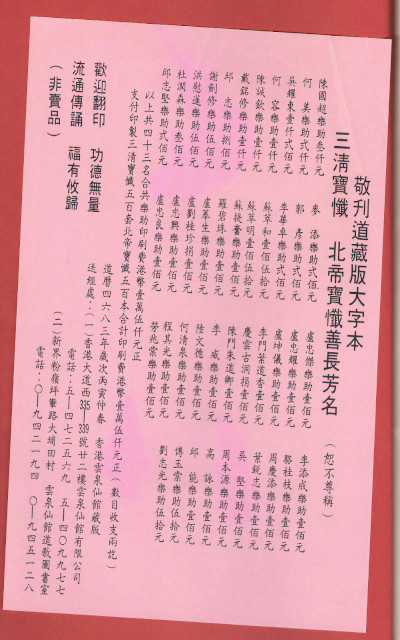 敬刊道藏版大字本
三淸寶懺 北帝寶懺善長芳名
（恕不尊稱）
陳國超樂助叁仟元
何英樂助弍仟元
吳耀東壹仟弍佰元
何容樂助壹仟元
陳誠欽樂助壹仟元
戴銘修樂助壹仟元
邱志樂助捌佰元
謝劍修樂助伍佰元
洪慰蓮樂助伍佰元
杜潤森樂助叁佰元
邱忠堅樂助弍佰元
麥添樂助弍佰元
郭彥樂助弍佰元
李華卓樂助弍佰元
蘇萃和壹佰伍拾元
蘇萃明壹佰伍拾元
蘇提奮樂助壹佰元
羅碧珠樂助壹佰元
盧養生樂助壹佰元
盧劉桂珍捐壹佰元
盧忠興樂助壹佰元
盧忠良樂助壹佰元
盧忠傑樂助壹佰元
盧忠耀樂助壹佰元
盧坤儀樂助壹佰元
李門葉道香壹佰元
慶雲古洞捐壹佰元
陳門朱道卿壹佰元
李威樂助壹佰元
陸文德樂助壹佰元
何清泉樂助壹佰元
程其光樂助壹佰元
勞兆棠樂助壹佰元
李添成樂助壹佰元
駱桂枝樂助壹佰元
周慶添樂助壹佰元
葉銳志樂助壹佰元
吳堅樂助壹佰元
周本源樂助壹佰元
高詠樂助壹佰元
邱能樂助壹佰元
傅玉棠樂助伍拾元
劉志光樂助伍拾元
以上共四十三名合共樂助印刷費港幣壹萬伍仟元正
支付印製三清寶懺五百套北帝寶懺五百本合計印刷費港幣壹萬伍仟元正（數目收支兩訖）
歡迎翻印 功德無量
流通傳誦 福有攸歸
（非賣品）
道曆四六八三年歲次丙寅仲春 香港雲泉仙館藏版
送經處：（一）香港大道西335—339號廿二樓雲泉仙館有限公司
電話：五—四七二五六九 五—四〇九九七七
（二）新界粉嶺坪輋路大埔田村 雲泉仙館道教圖書室
電話：〇—九四二一九四 〇—九四五一二八